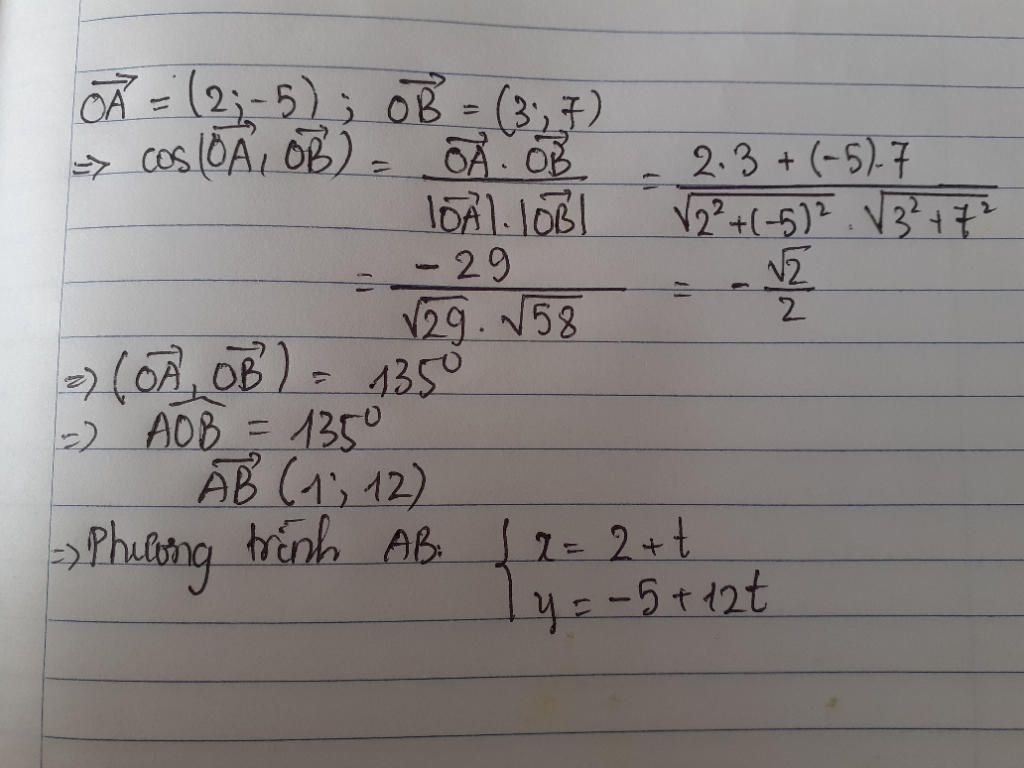 OA→ = (2;-5) ; OB→ = (3; 7)
=> cos(OA→, OB→) = OA→ . OB→ / |OA→|.|OB→| = 2.3 + (-5).7 / √(2² + (-5)²) . √(3² + 7²)
= -29 / √29 . √58 = - √2 / 2
=> (OA→, OB→) = 135⁰
=> AOB^ = 135⁰
AB→ (1; 12)
=> Phương trình AB: { x = 2 + t
y = -5 + 12t